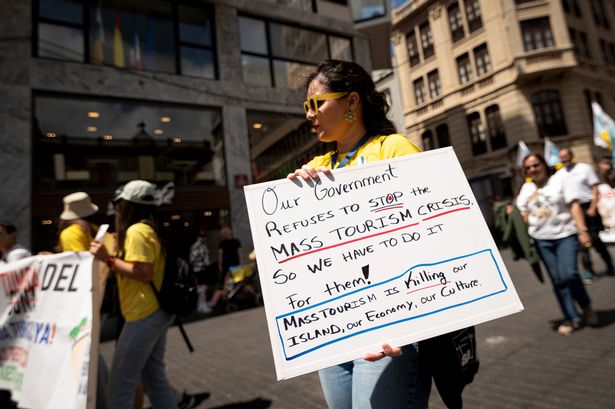 Our Government
REFUSES TO STOP the
MASS TOURISM CRISIS.
SO WE HAVE TO DO IT
For them!
MASS TOURISM IS Killing our
ISLAND, our Economy, our Culture.
DEL